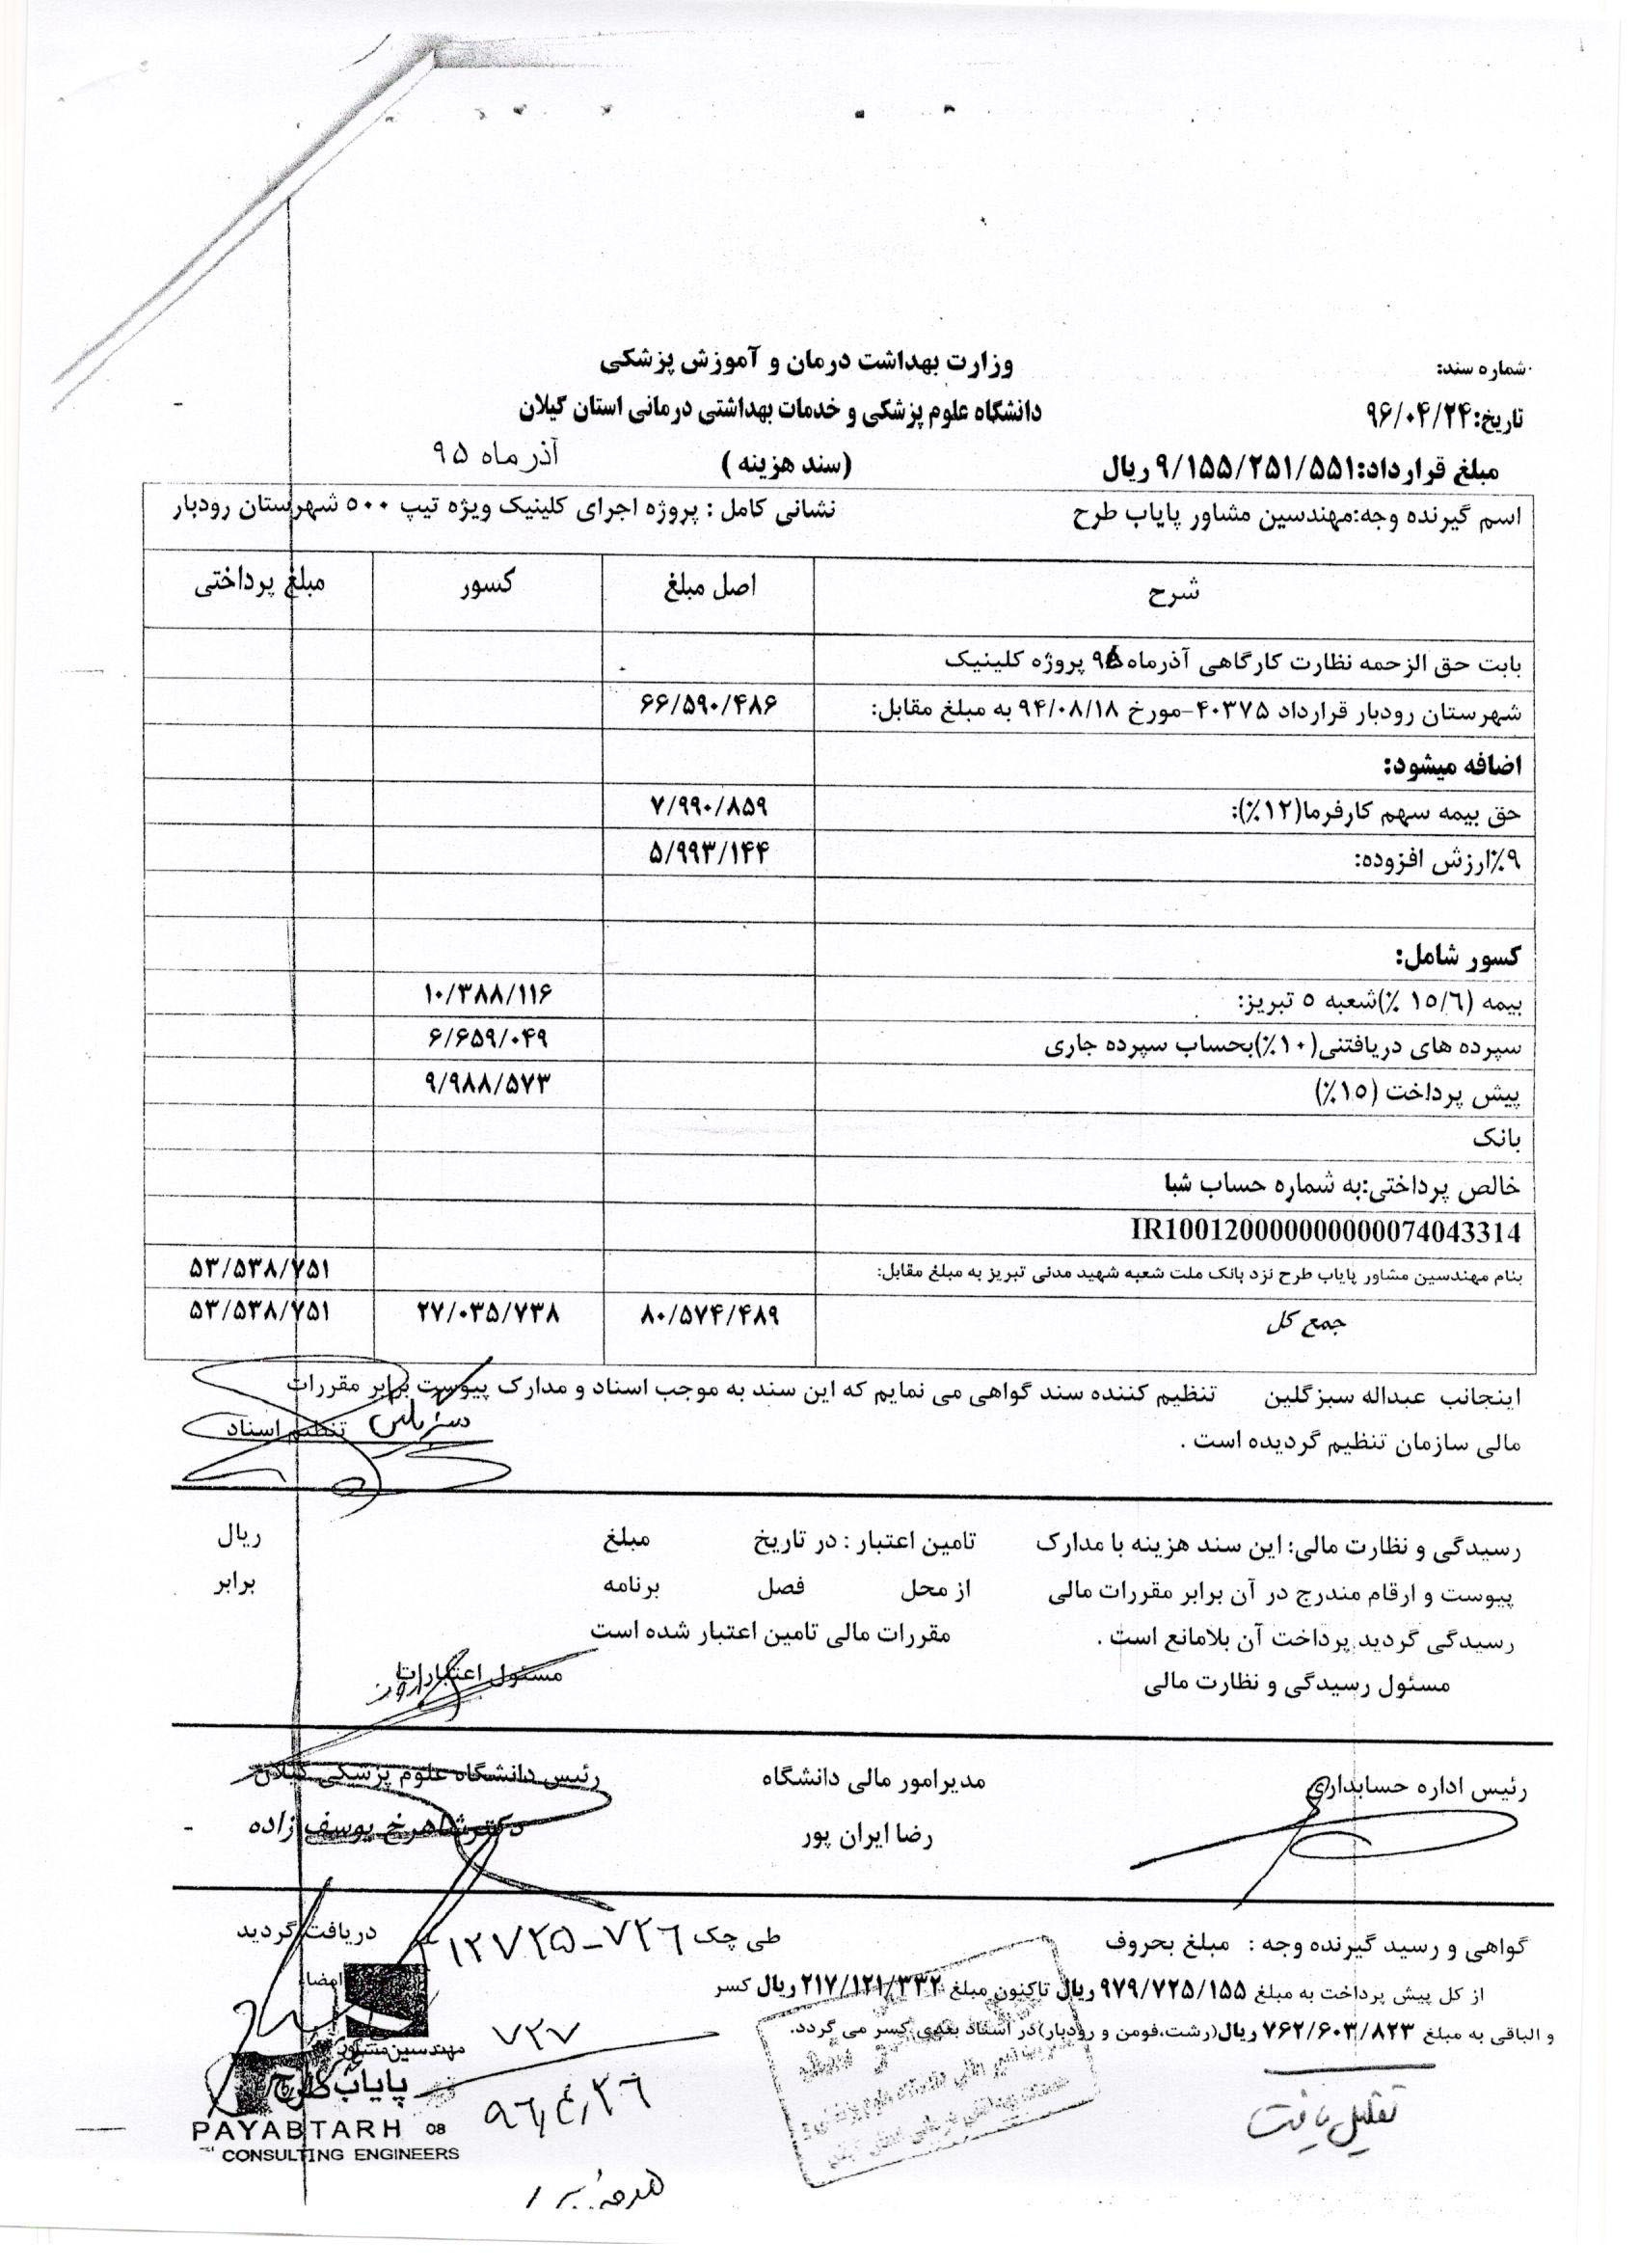 وزارت بهداشت درمان و آموزش پزشکی
شماره سند:
دانشگاه علوم پزشکی و خدمات بهداشتی درمانی استان گیلان
تاریخ:۹۶/۰۴/۲۴
مبلغ قرارداد:۹/۱۵۵/۲۵۱/۵۵۱ ریال
(سند هزینه )
آذر ماه ۹۵
اسم گیرنده وجه:مهندسین مشاور پایاب طرح
نشانی کامل : پروژه اجرای کلینیک ویژه تیپ ۵۰۰ شهرستان رودبار
شرح اصل مبلغ کسور مبلغ پرداختی
بابت حق الزحمه نظارت کارگاهی آذرماه ۹۵ پروژه کلینیک
شهرستان رودبار قرارداد ۴۰۳۷۵-مورخ ۹۴/۰۸/۱۸ به مبلغ مقابل: ۶۶/۵۹۰/۴۸۶
اضافه میشود:
حق بیمه سهم کارفرما(۱۲٪): ۷/۹۹۰/۸۵۹
۹٪ارزش افزوده: ۵/۹۹۳/۱۴۴
کسور شامل:
بیمه (۱۵/۶ ٪)شعبه ۵ تبریز: ۱۰/۳۸۸/۱۱۶
سپرده های دریافتنی(۱۰٪)بحساب سپرده جاری ۶/۶۵۹/۰۴۹
پیش پرداخت (۱۵٪) ۹/۹۸۸/۵۷۳
بانک
خالص پرداختی:به شماره حساب شبا
IR100120000000000074043314
بنام مهندسین مشاور پایاب طرح نزد بانک ملت شعبه شهید مدنی تبریز به مبلغ مقابل: ۵۳/۵۳۸/۷۵۱
جمع کل ۸۰/۵۷۴/۴۸۹ ۲۷/۰۳۵/۷۳۸ ۵۳/۵۳۸/۷۵۱
اینجانب عبداله سبزگلین تنظیم کننده سند گواهی می نمایم که این سند به موجب اسناد و مدارک پیوست برابر مقررات
مالی سازمان تنظیم گردیده است .
تنظیم اسناد
رسیدگی و نظارت مالی: این سند هزینه با مدارک
پیوست و ارقام مندرج در آن برابر مقررات مالی
رسیدگی گردید پرداخت آن بلامانع است .
مسئول رسیدگی و نظارت مالی
تامین اعتبار : در تاریخ مبلغ ریال
از محل فصل برنامه برابر
مقررات مالی تامین اعتبار شده است
مسئول اعتبارات
رئیس اداره حسابداری
مدیرامور مالی دانشگاه
رضا ایران پور
رئیس دانشگاه علوم پزشکی گیلان
دکتر شاهرخ یوسف زاده
گواهی و رسید گیرنده وجه : مبلغ بحروف
طی چک ۱۲۷۲۵-۷۲۶ دریافت گردید
امضا:
از کل پیش پرداخت به مبلغ ۹۷۹/۷۲۵/۱۵۵ ریال تاکنون مبلغ ۲۱۷/۱۲۱/۳۳۲ ریال کسر
و الباقی به مبلغ ۷۶۲/۶۰۳/۸۲۳ ریال(رشت،فومن و رودبار)در اسناد بعدی کسر می گردد.
۷۲۷
۹۶,۴,۲۶
تقلیل یافت
مهندسین مشاور
پایاب طرح
PAYABTARH 08
CONSULTING ENGINEERS